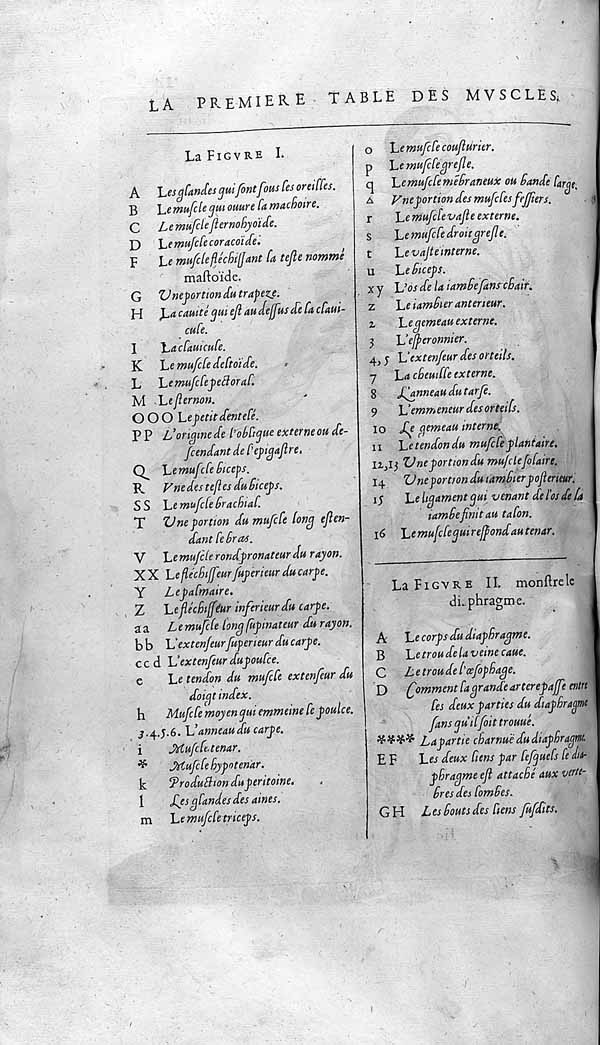 LA PREMIERE TABLE DES MVSCLES.
La FIGVRE I.
A Les glandes qui sont sous les oreilles.
B Le muscle qui ouure la machoire.
C Le muscle sternohyoïde.
D Le muscle coracoïde.
F Le muscle fléchissant la teste nommé
mastoïde.
G Vne portion du trapeze.
H La cauité qui est au dessus de la claui-
cule.
I La clauicule.
K Le muscle deltoïde.
L Le muscle pectoral.
M Le sternon.
OOO Le petit dentelé.
PP L'origine de l'oblique externe ou de-
scendant de l'epigastre.
Q Le muscle biceps.
R Vne des testes du biceps.
SS Le muscle brachial.
T Vne portion du muscle long esten-
dant le bras.
V Le muscle rond pronateur du rayon.
XX Le fléchisseur superieur du carpe.
Y Le palmaire.
Z Le fléchisseur inferieur du carpe.
aa Le muscle long supinateur du rayon.
bb L'extenseur superieur du carpe.
cc d L'extenseur du poulce.
e Le tendon du muscle extenseur du
doigt index.
h Muscle moyen qui emmeine le poulce.
3.4.5.6. L'anneau du carpe.
i Muscle tenar.
* Muscle hypotenar.
k Production du peritoine.
l Les glandes des aines.
m Le muscle triceps.
o Le muscle cousturier.
p Le muscle gresle.
q Le muscle mēbraneux ou bande large.
Δ Vne portion des muscles fessiers.
r Le muscle vaste externe.
s Le muscle droit gresle.
t Le vaste interne.
u Le biceps.
xy L'os de la iambe sans chair.
z Le iambier anterieur.
2 Le gemeau externe.
3 L'esperonnier.
4,5 L'extenseur des orteils.
7 La cheuille externe.
8 L'anneau du tarse.
9 L'emmeneur des orteils.
10 Le gemeau interne.
11 Le tendon du muscle plantaire.
12,13 Vne portion du muscle solaire.
14 Vne portion du iambier posterieur.
15 Le ligament qui venant de l'os de la
iambe finit au talon.
16 Le muscle qui respond au tenar.
La FIGVRE II. monstre le
di phragme.
A Le corps du diaphragme.
B Le trou de la veine caue.
C Le trou de l'œsophage.
D Comment la grande artere passe entre
les deux parties du diaphragme
sans qu'il soit trouué.
**** La partie charnuë du diaphragme.
EF Les deux liens par lesquels le dia-
phragme est attaché aux verte-
bres des lombes.
GH Les bouts des liens susdits.